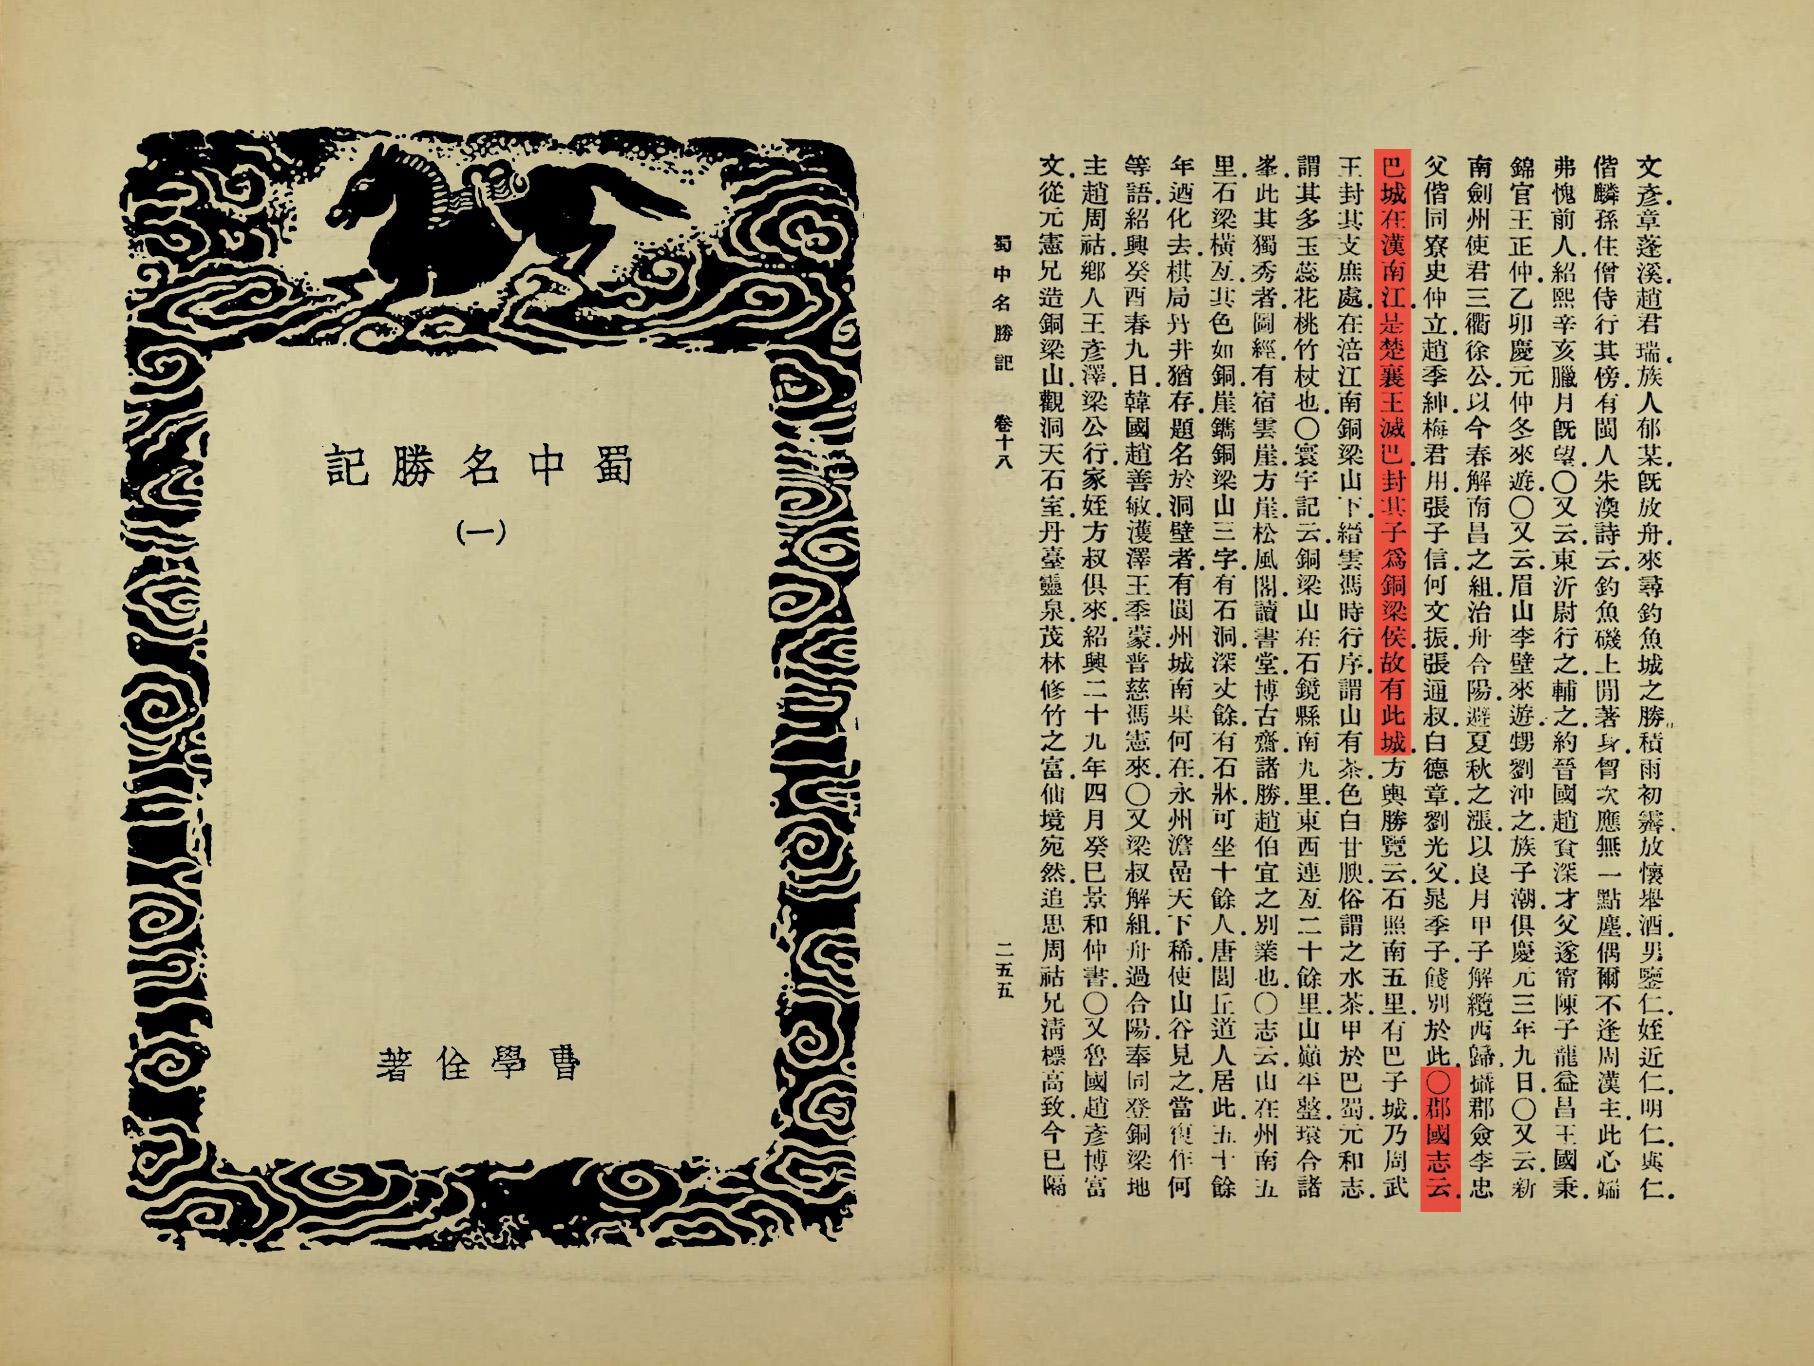 文彥．章蓬溪．趙君瑞．族人郁某既放舟．來尋釣魚城之勝．積雨初霽．放懷舉酒．男鑒仁．姪近仁．明仁．與仁．
偕麟孫住僧侍行其傍．有閩人朱渙詩云．釣魚磯上閒著身．胷次應無一點塵．偶爾不逢周漢主．此心端
弗愧前人．紹熙辛亥臘月既望．〇又云．東沂尉行之．輔之．約晉國趙深才父遂甯陳子龍益昌王國秉．
錦官王正仲．乙卯慶元仲冬來遊．〇又云．眉山李壁來遊．甥劉沖之．族子潮．俱慶元三年九日．〇又云．新
南劍州使君三衢徐公．以今春解南昌之組．治舟合陽．避夏秋之漲．以良月甲子解纜西歸．攝郡僉李忠
父偕同寮史仲立．趙季紳梅君用張子信．何文振．張通叔．白德章．劉光父．晁季子．餞別於此．〇郡國志云．
巴城在漢南江．是楚襄王滅巴．封其子爲銅梁侯．故有此城．方輿勝覽云．石照南五里．有巴子城．乃周武
王封其支庶處．在涪江南銅梁山下．縉雲馮時行序．謂山有茶．色白甘腴．俗謂之水茶．甲於巴蜀．元和志．
謂其多玉蕊花桃竹杖也．〇寰宇記云．銅梁山在石鏡縣南九里．東西連亙二十餘里．山巔平整．環合諸
峯．此其獨秀者．圖經．有宿雲崖．方崖．松風閣．讀書堂．博古齋諸勝．趙伯宜之別業也．〇志云．山在州南五
里．石梁橫亙．其色如銅．崖鐫銅梁山三字．有石洞深丈餘．有石牀．可坐十餘人．唐閭丘道人居此．五十餘
年．迺化去．棋局丹井猶存．題名於洞壁者．有閬州城南果何在．永州澹嵒天下稀．使山谷見之．當復作何
等語．紹興癸酉春九日．韓國趙善敏．濩澤王季蒙．普慈馮憲來．〇又梁叔解組．舟過合陽．奉同登銅梁地
主．趙周祜．鄉人王彥澤．梁公行．家姪方叔俱來．紹興二十九年四月癸巳景和仲書．〇又魯國趙彥博富
文．從元憲兄造銅梁山．觀洞天石室．丹臺靈泉．茂林修竹之富．仙境宛然．追思周祜兄清標高致．今已隔
蜀中名勝記 卷十八 二五五
蜀中名勝記
(一)
曹學佺著